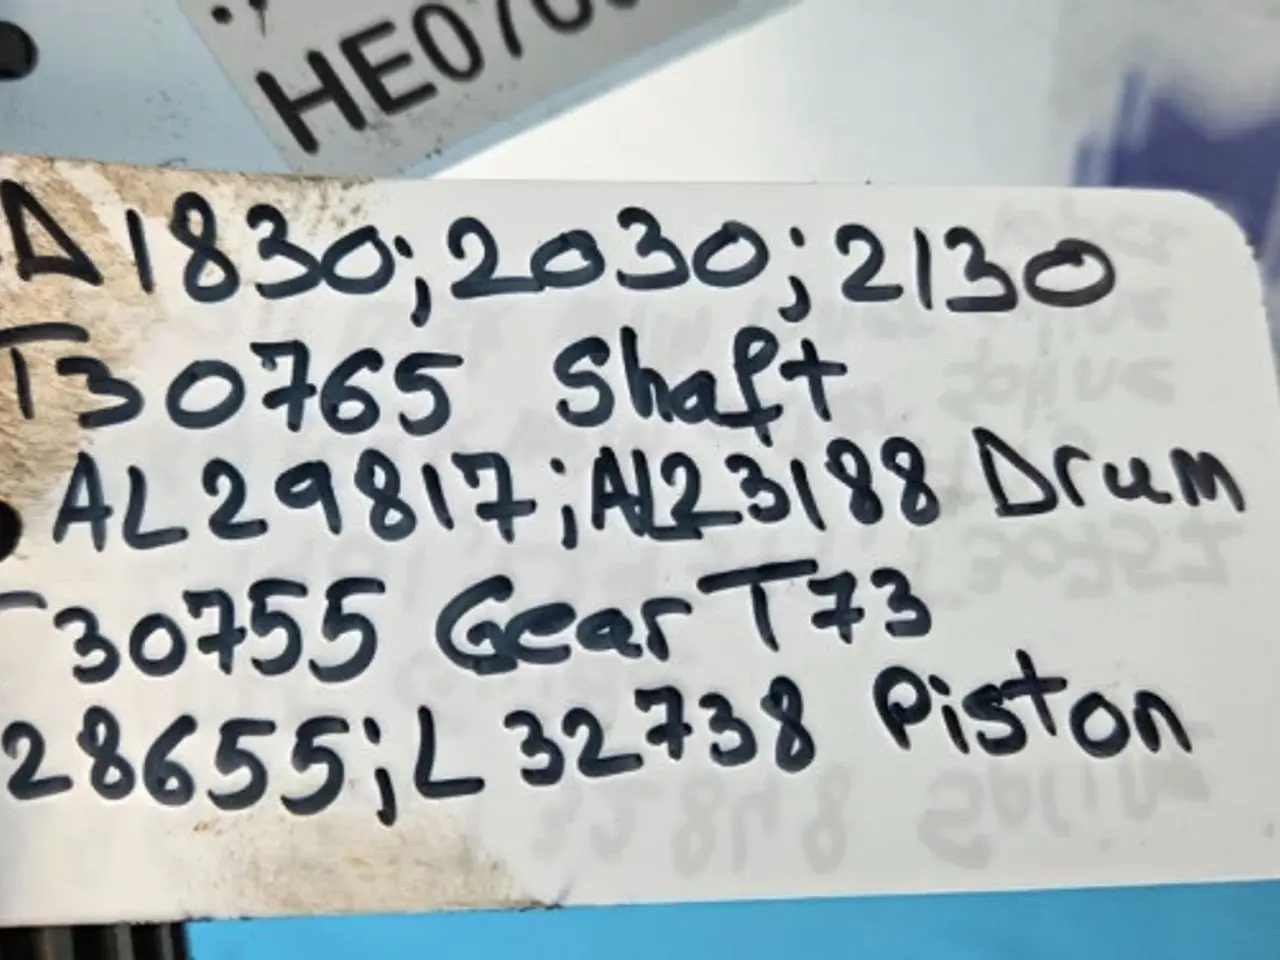 HE070
D1830;2030;2130
T30765 Shaft
AL29817;AL23188 Drum
T30755 Gear T73
28655;L32738 Piston